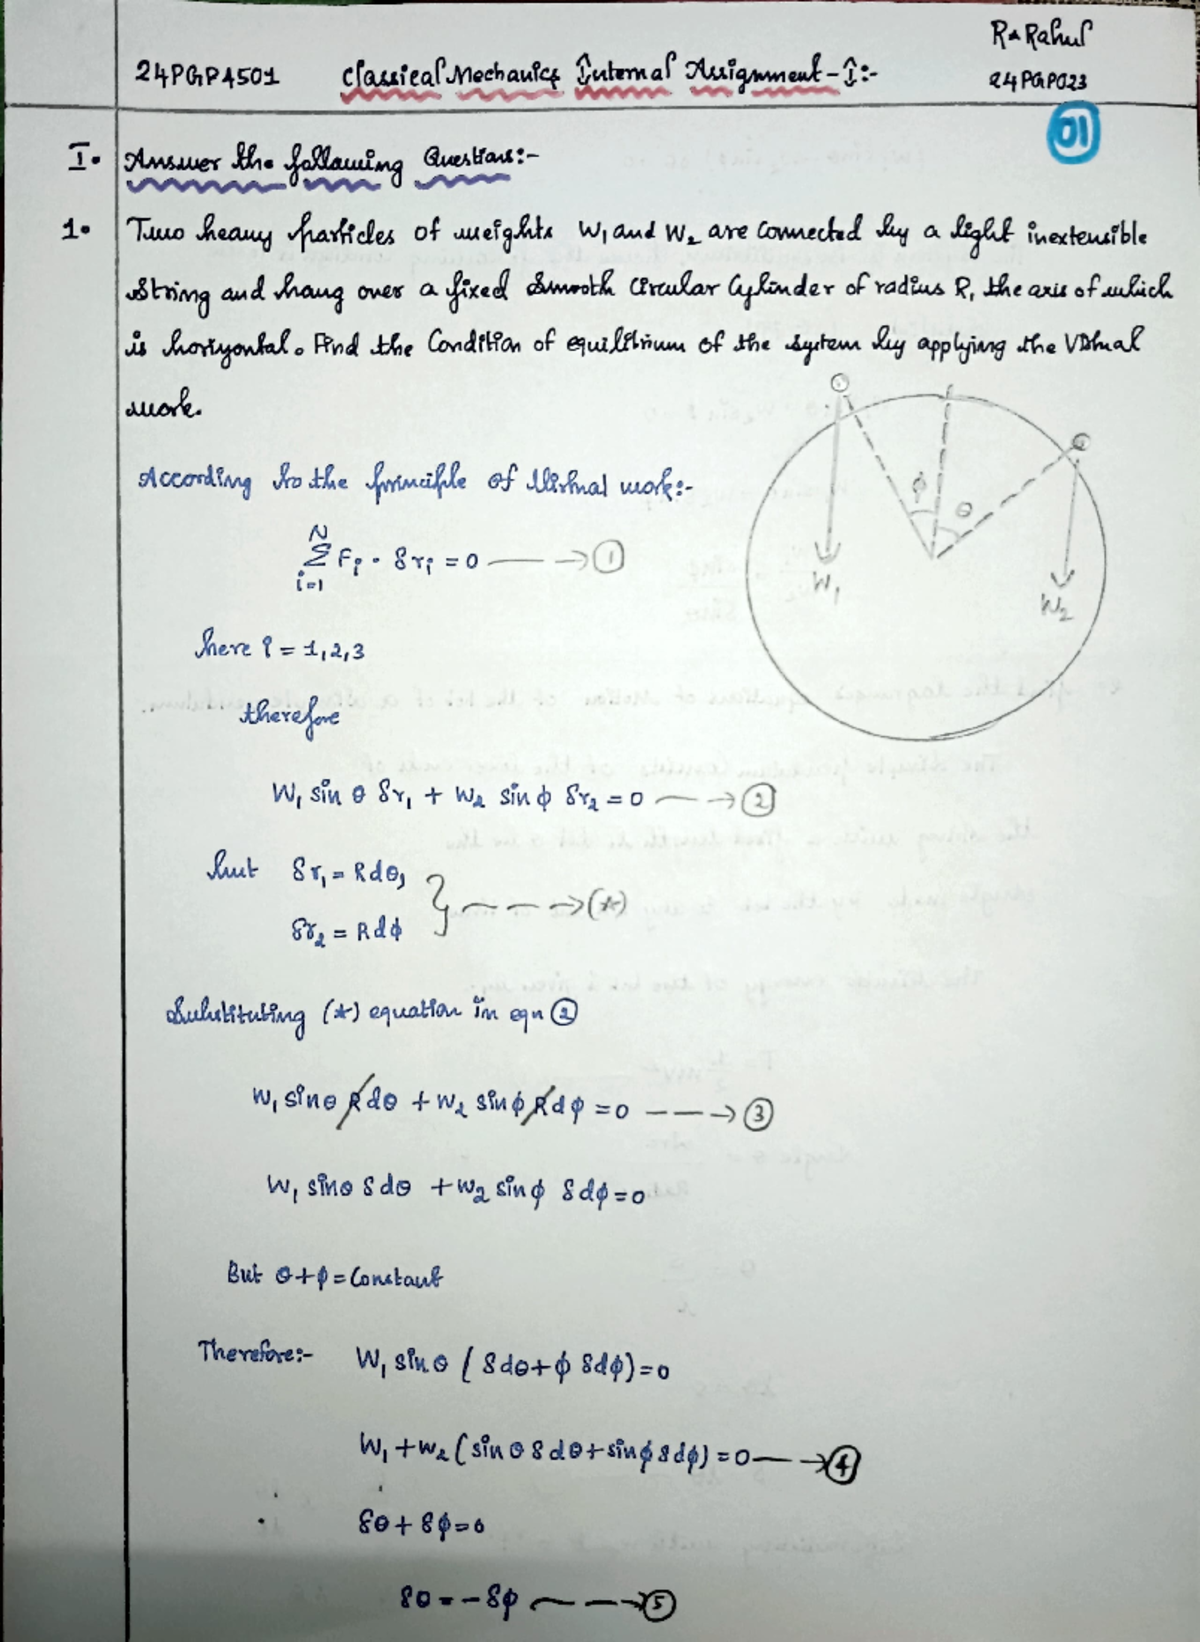 R. Rahul
24PGP4501 Classical Mechanics Internal Assignment-I:-
24PGP023
01
I. Answer the following Questions:-
1. Two heavy particles of weights W₁ and W₂ are connected by a light inextensible
string and hang over a fixed smooth circular cylinder of radius R, the axis of which
is horizontal. Find the condition of equilibrium of the system by applying the virtual
work.
According to the principle of virtual work:-
φ θ
W₁ W₂
N
Σ Fᵢ · δrᵢ = 0 ——→ ①
i=1
here i = 1,2,3
therefore
W₁ sin θ δr₁ + W₂ sin φ δr₂ = 0 ——→ ②
but δr₁ = Rdθ,
} ———→ (*)
δr₂ = Rdφ
Substituting (*) equation in eqn ②
W₁ sinθ Rdθ + W₂ sinφ Rdφ = 0 ———→ ③
W₁ sinθ δdθ + W₂ sinφ δdφ = 0
But θ+φ = Constant
Therefore:- W₁ sinθ (δdθ+φ δdφ)=0
W₁ + W₂ (sinθ δdθ + sinφ δdφ) = 0 ——→ ④
∴ δθ + δφ = 0
δθ = -δφ ———→ ⑤